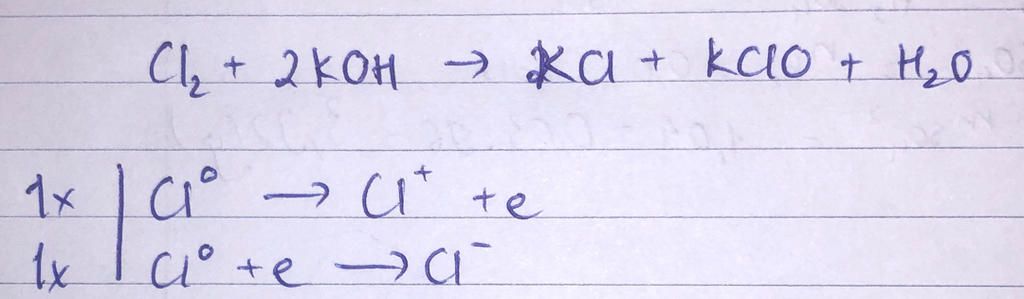 Cl₂ + 2KOH → KCl + KClO + H₂O
1x | Cl⁰ → Cl⁺ + e
1x | Cl⁰ + e → Cl⁻